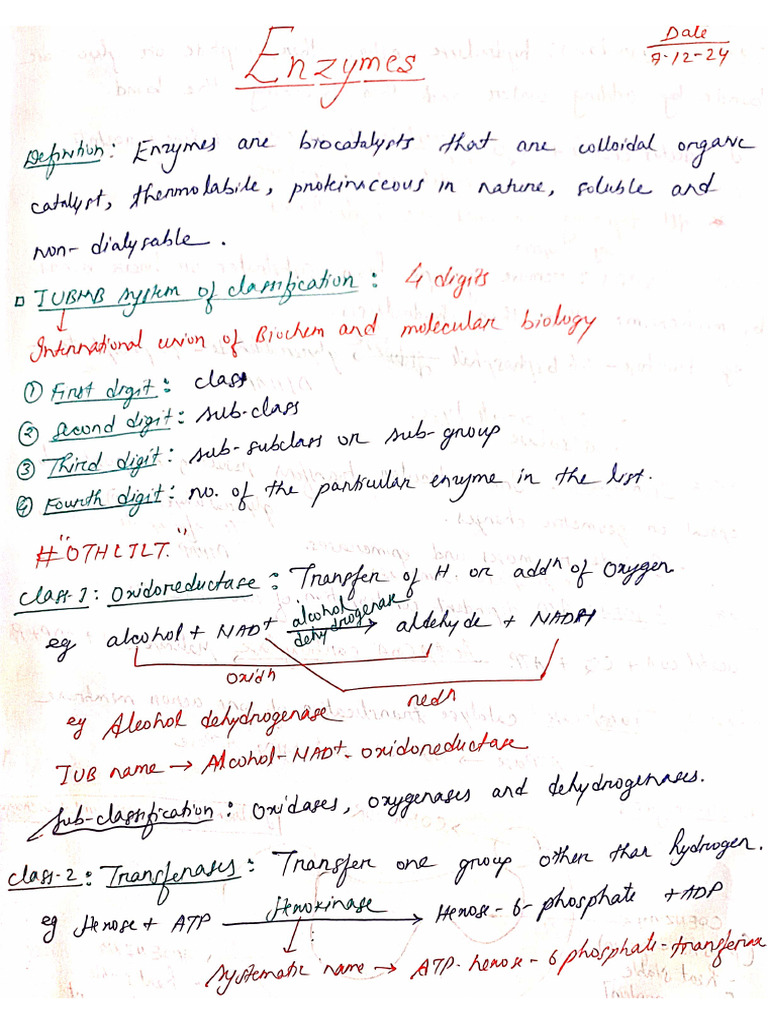 Enzymes
Date
7-12-24
Definition: Enzymes are biocatalysts that are colloidal organic
catalyst, thermolabile, proteinaceous in nature, soluble and
non-dialysable.
IUBMB system of classification: 4 digits
International union of Biochem and molecular biology
① First digit: class
② second digit: sub-class
③ Third digit: sub-subclass or sub-group
④ Fourth digit: no. of the particular enzyme in the list.
# "OTHLILT."
class-1: Oxidoreductase: Transfer of H. or addⁿ of Oxygen.
eg alcohol + NAD⁺ alcohol dehydrogenase → aldehyde + NADH
oxidⁿ
redⁿ
eg Alcohol dehydrogenase
IUB name → Alcohol-NAD⁺-oxidoreductase
Sub-classification: Oxidases, oxygenases and dehydrogenases.
class-2: Transferases: Transfer one group other than hydrogen.
eg Hexose + ATP Hexokinase → Hexose-6-phosphate + ADP
systematic name → ATP-hexose-6 phosphate-transferase